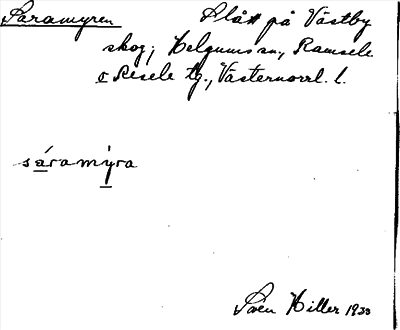 Saramyren Slått på Västby
skog; Helgums sn, Ramsele
o Resele tg., Västernorrl. l.
sáramýra
Sven Hiller 1933